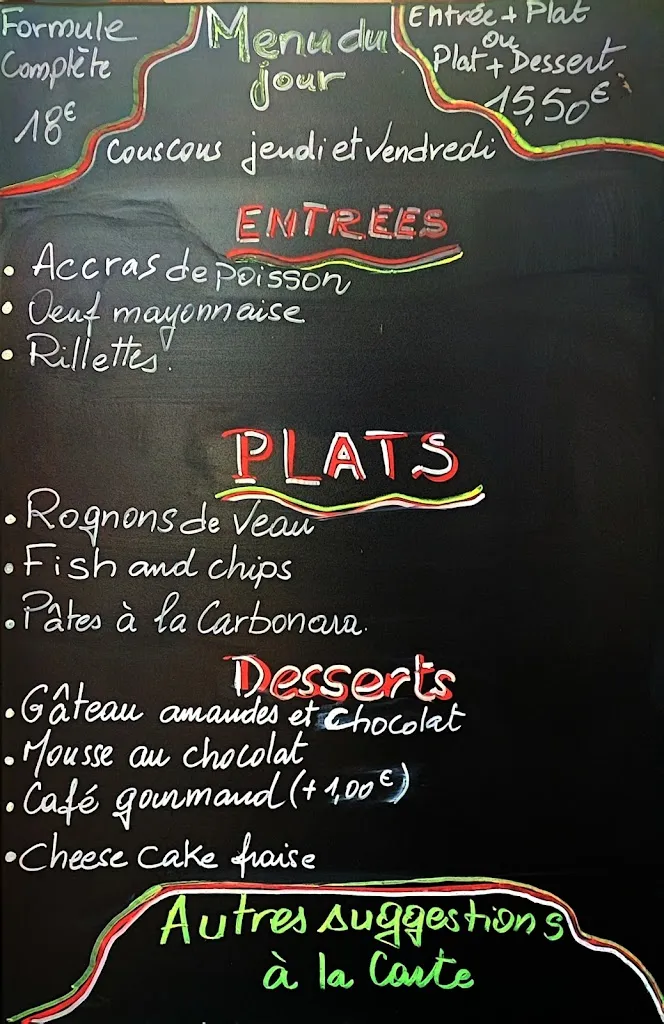 Formule
Complète
18€
Menu du
jour
Entrée + Plat
ou
Plat + Dessert
15,50€
Couscous jeudi et Vendredi
ENTRÉES
• Accras de poisson
• Oeuf mayonnaise
• Rillettes.
PLATS
• Rognons de Veau
• Fish and chips
• Pâtes à la Carbonara.
Desserts
• Gâteau amandes et chocolat
• Mousse au chocolat
• Café gourmand (+ 1,00€)
• Cheese cake fraise
Autres suggestions
à la Carte